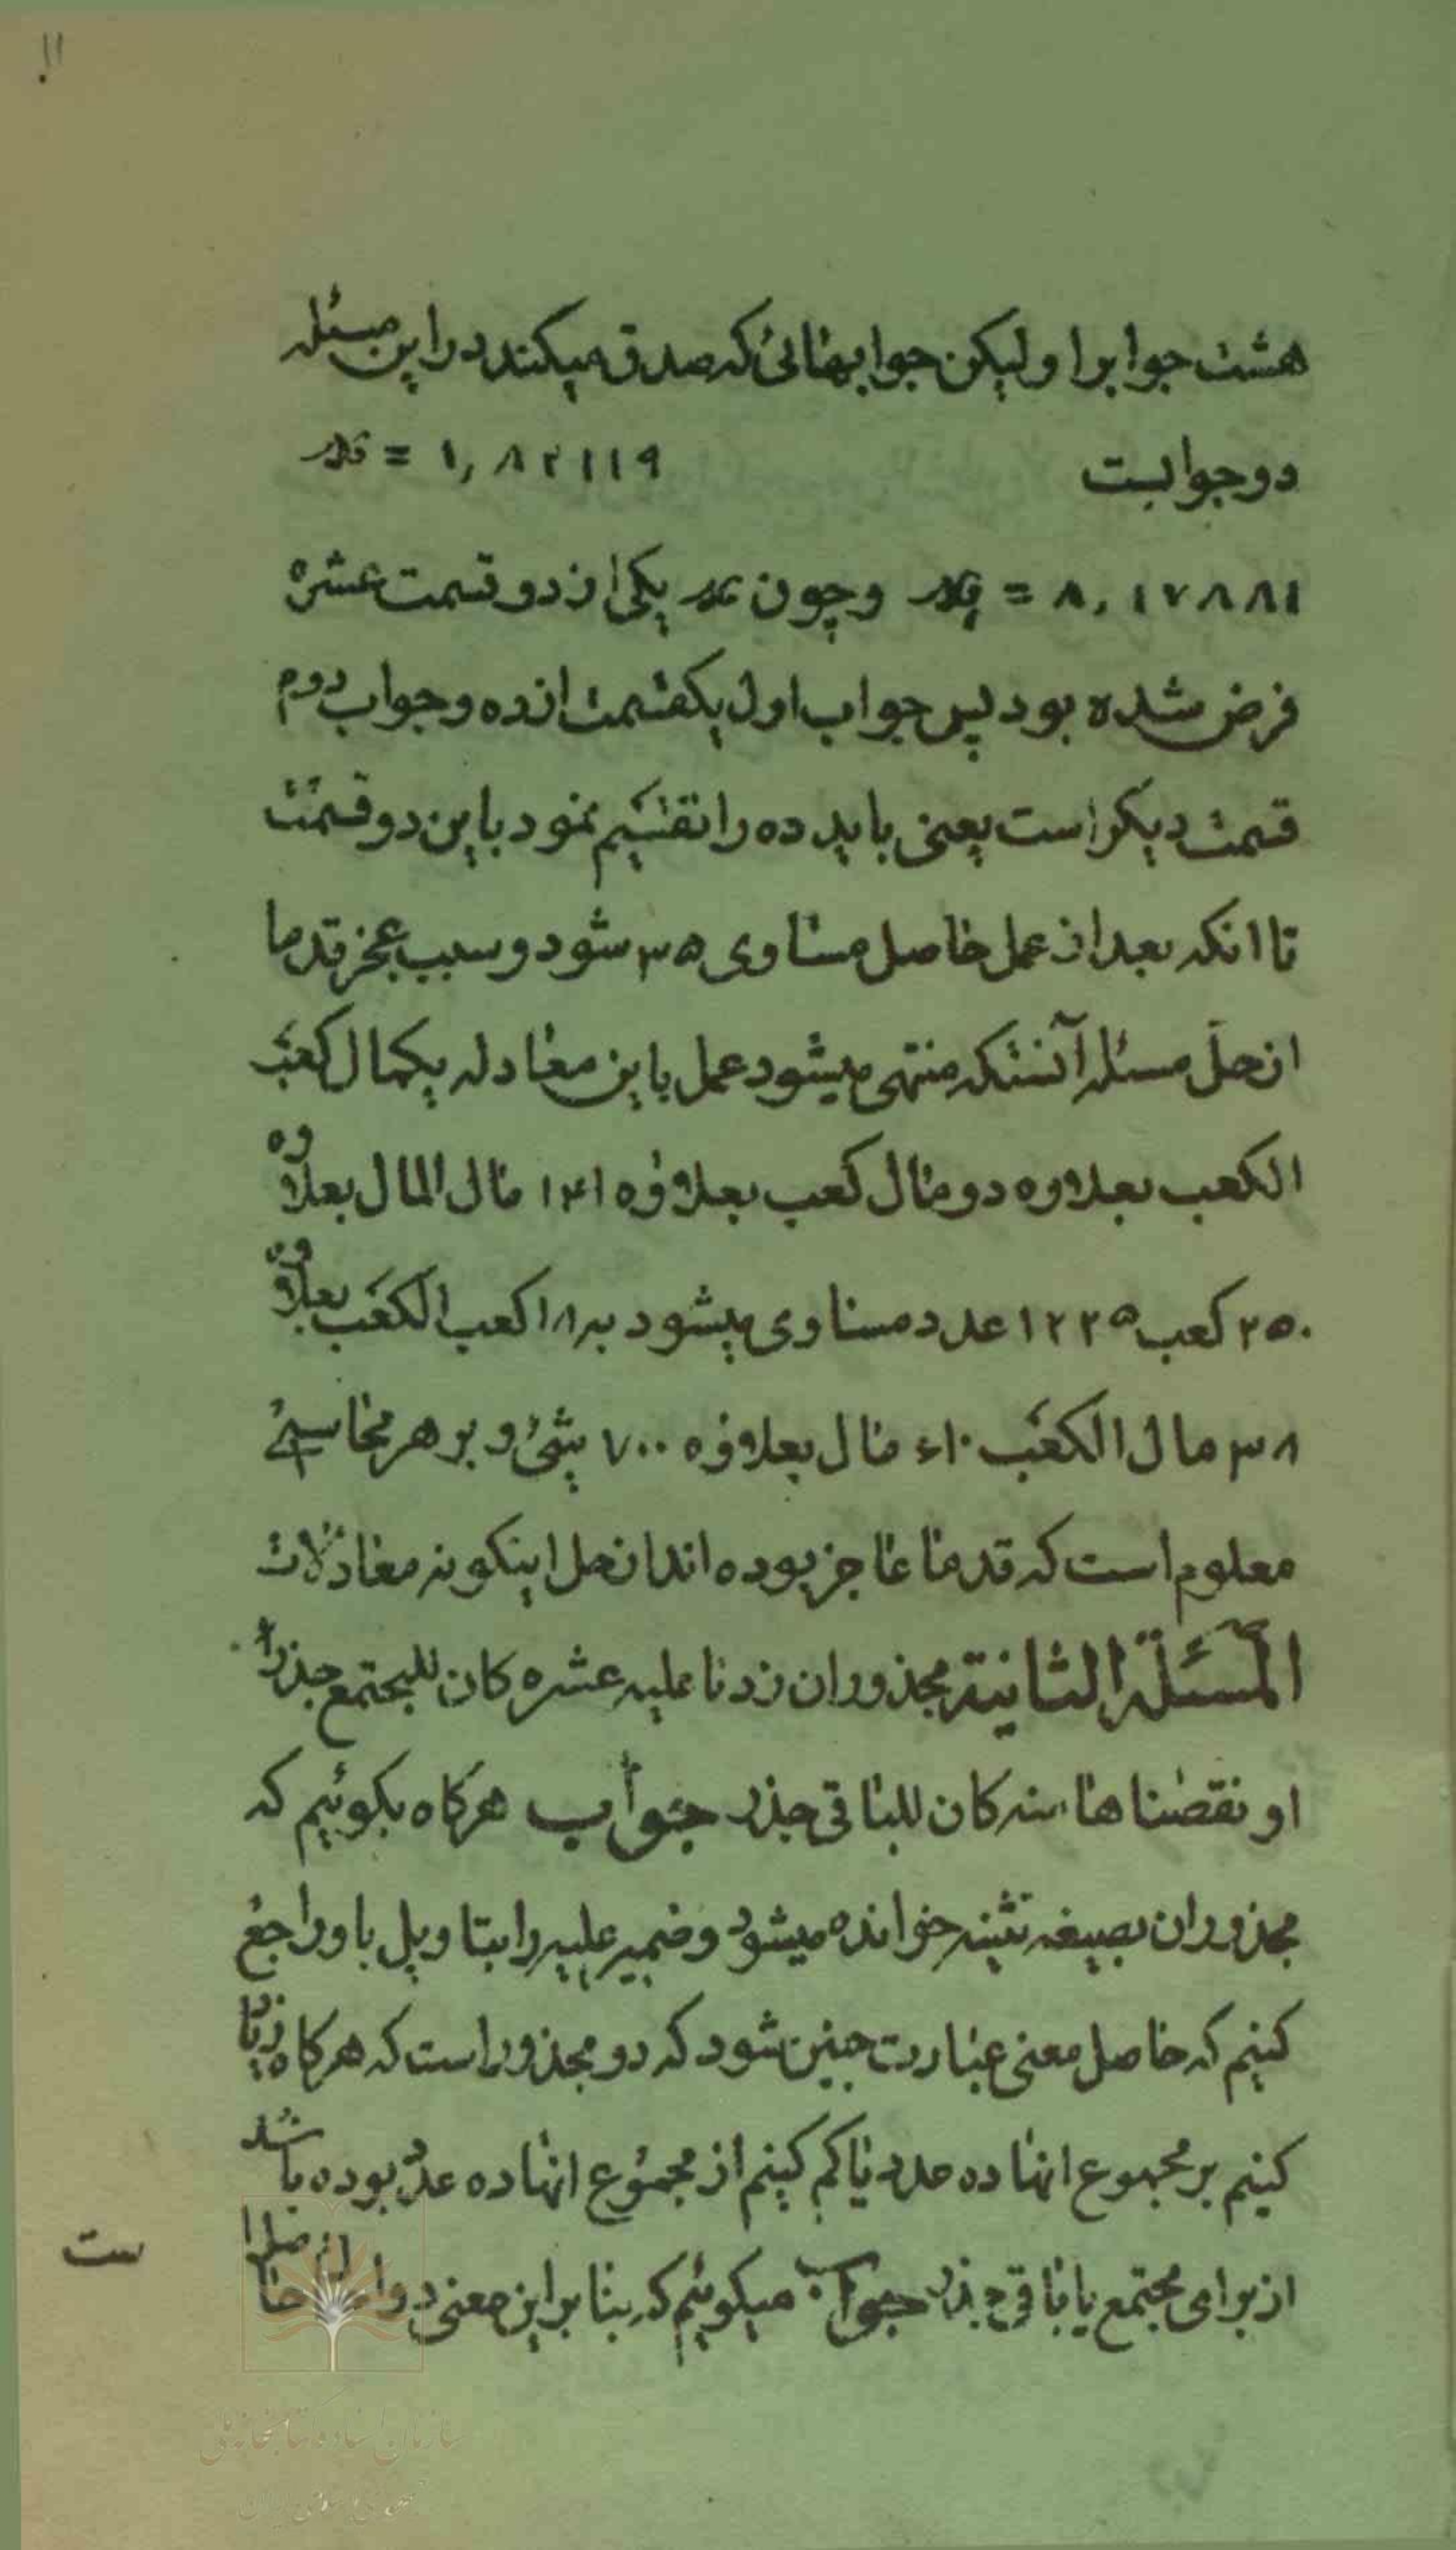 ۱۱
هشت جوابرا ولیکن جوابهائی که صدق میکند در این مسئله
دو جوابست ۱٫۸۲۱۱۹ =
۸٫۱۷۸۸۱ = وچون یکی از دو قسمت عشره
فرض شده بود پس جواب اول یکقسمت از ده و جواب دوم
قسمت دیکر است یعنی باید ده را تقسیم نمود باین دو قسمت
تا انکه بعد از عمل حاصل مساوی ۳۵ شود و سبب عجز قدما
از حل مسئله آنستکه منتهی میشود عمل باین معادله یکمال کعب
الکعب بعلاوه دو مال کعب بعلاوه ۱۴۱ مال المال بعلاوه
۲۵۰ کعب ۱۲۲۵ عدد مساوی میشود به ۱۸ کعب الکعب بعلاوه
۳۸ مال الکعب ۶۱۰ مال بعلاوه ۷۰۰ شئ و بر هر محاسبی
معلوم است که قدما عاجز بوده اند از حل اینکونه معادلات
المسئلة الثانیة مجذوران زدنا علیه عشره کان للمجتمع جذرا
او نقصناها منه کان للباقی جذر جواب هرکاه بکوئیم که
مجذوران بصیغه تثنیه خوانده میشود و ضمیر علیه را بتاویل باو راجع
کنیم که حاصل معنی عبارت چنین شود که دو مجذور است که هرکاه زیاد
کنیم بر مجموع انها ده عدد یا کم کنیم از مجموع انها ده عدد بوده باشد
از برای مجتمع یا باقی جذر جواب میکوئیم که بنا بر این معنی دو
ست
سازمان اسناد و کتابخانه ملی
جمهوری اسلامی ایران